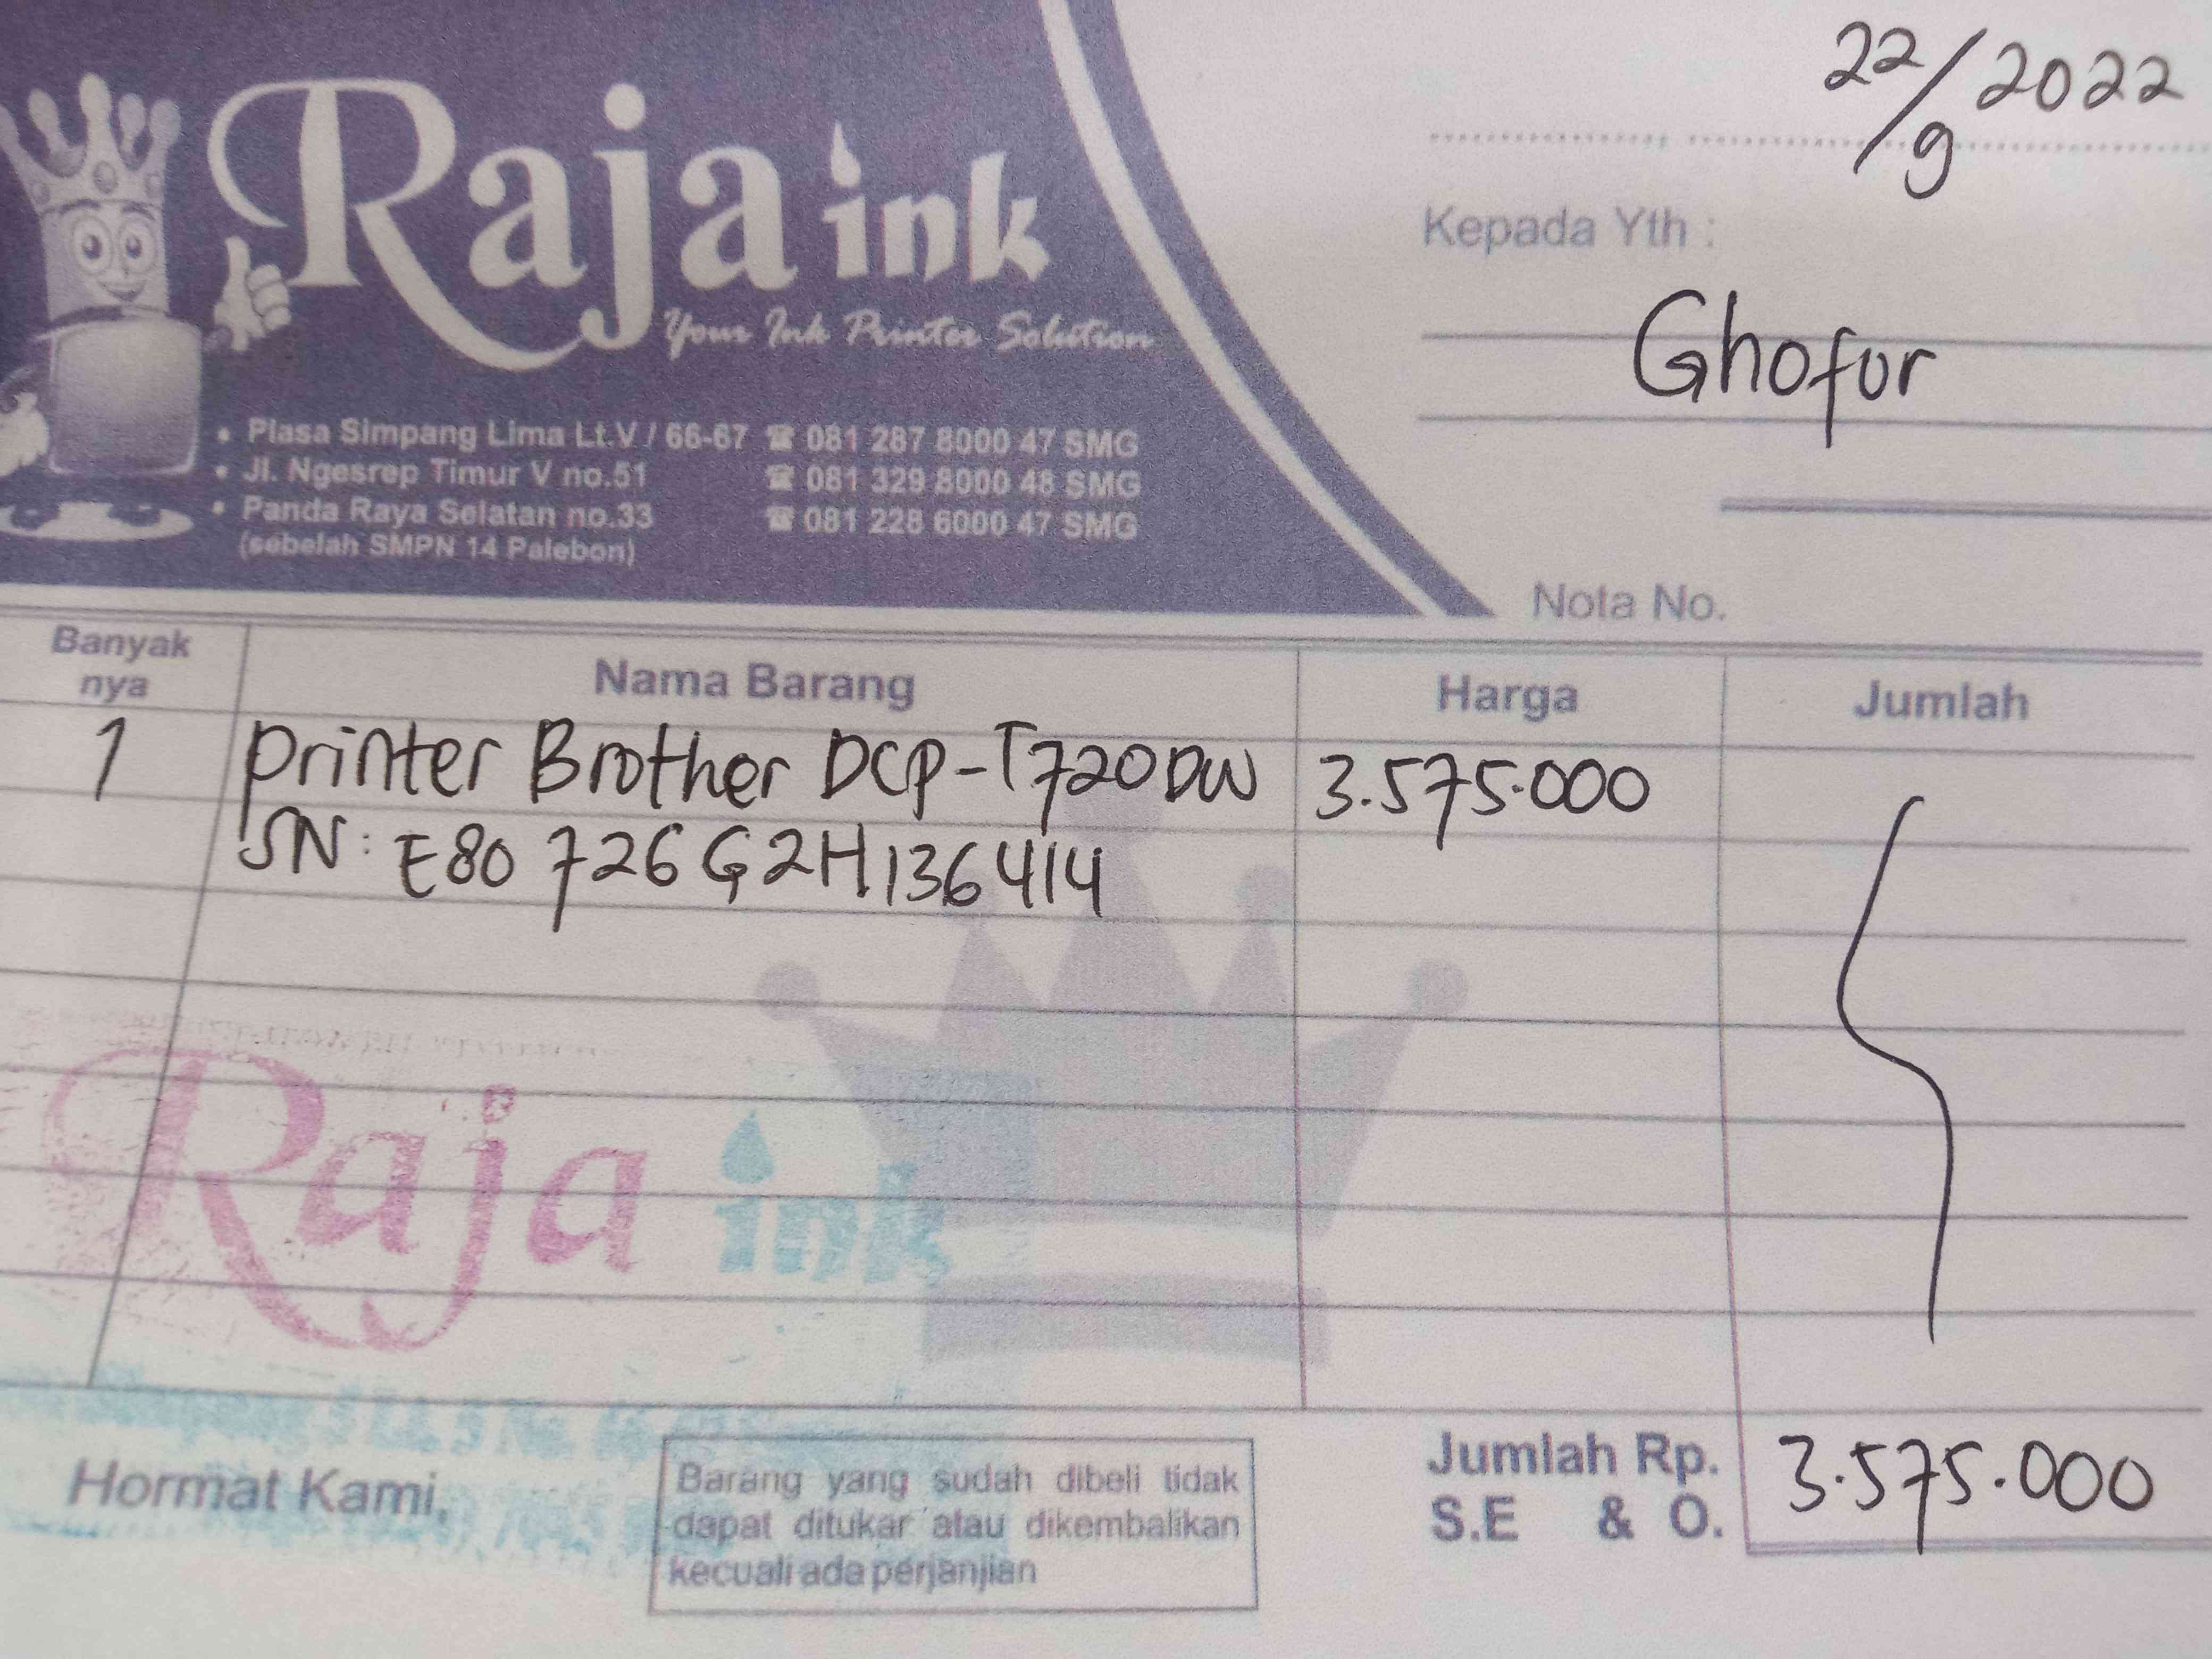 Raja ink
Your Ink Printer Solution
• Plasa Simpang Lima Lt.V / 66-67 ☎ 081 287 8000 47 SMG
• Jl. Ngesrep Timur V no.51 ☎ 081 329 8000 48 SMG
• Panda Raya Selatan no.33 ☎ 081 228 6000 47 SMG
(sebelah SMPN 14 Palebon)
22/9 2022
Kepada Yth :
Ghofur
Nota No.
Banyak nya Nama Barang Harga Jumlah
1 Printer Brother DCP-T720DW 3.575.000
SN: E80 726 G2H136414
Raja ink
Hormat Kami,
Barang yang sudah dibeli tidak
dapat ditukar atau dikembalikan
kecuali ada perjanjian
Jumlah Rp. 3.575.000
S.E & O.